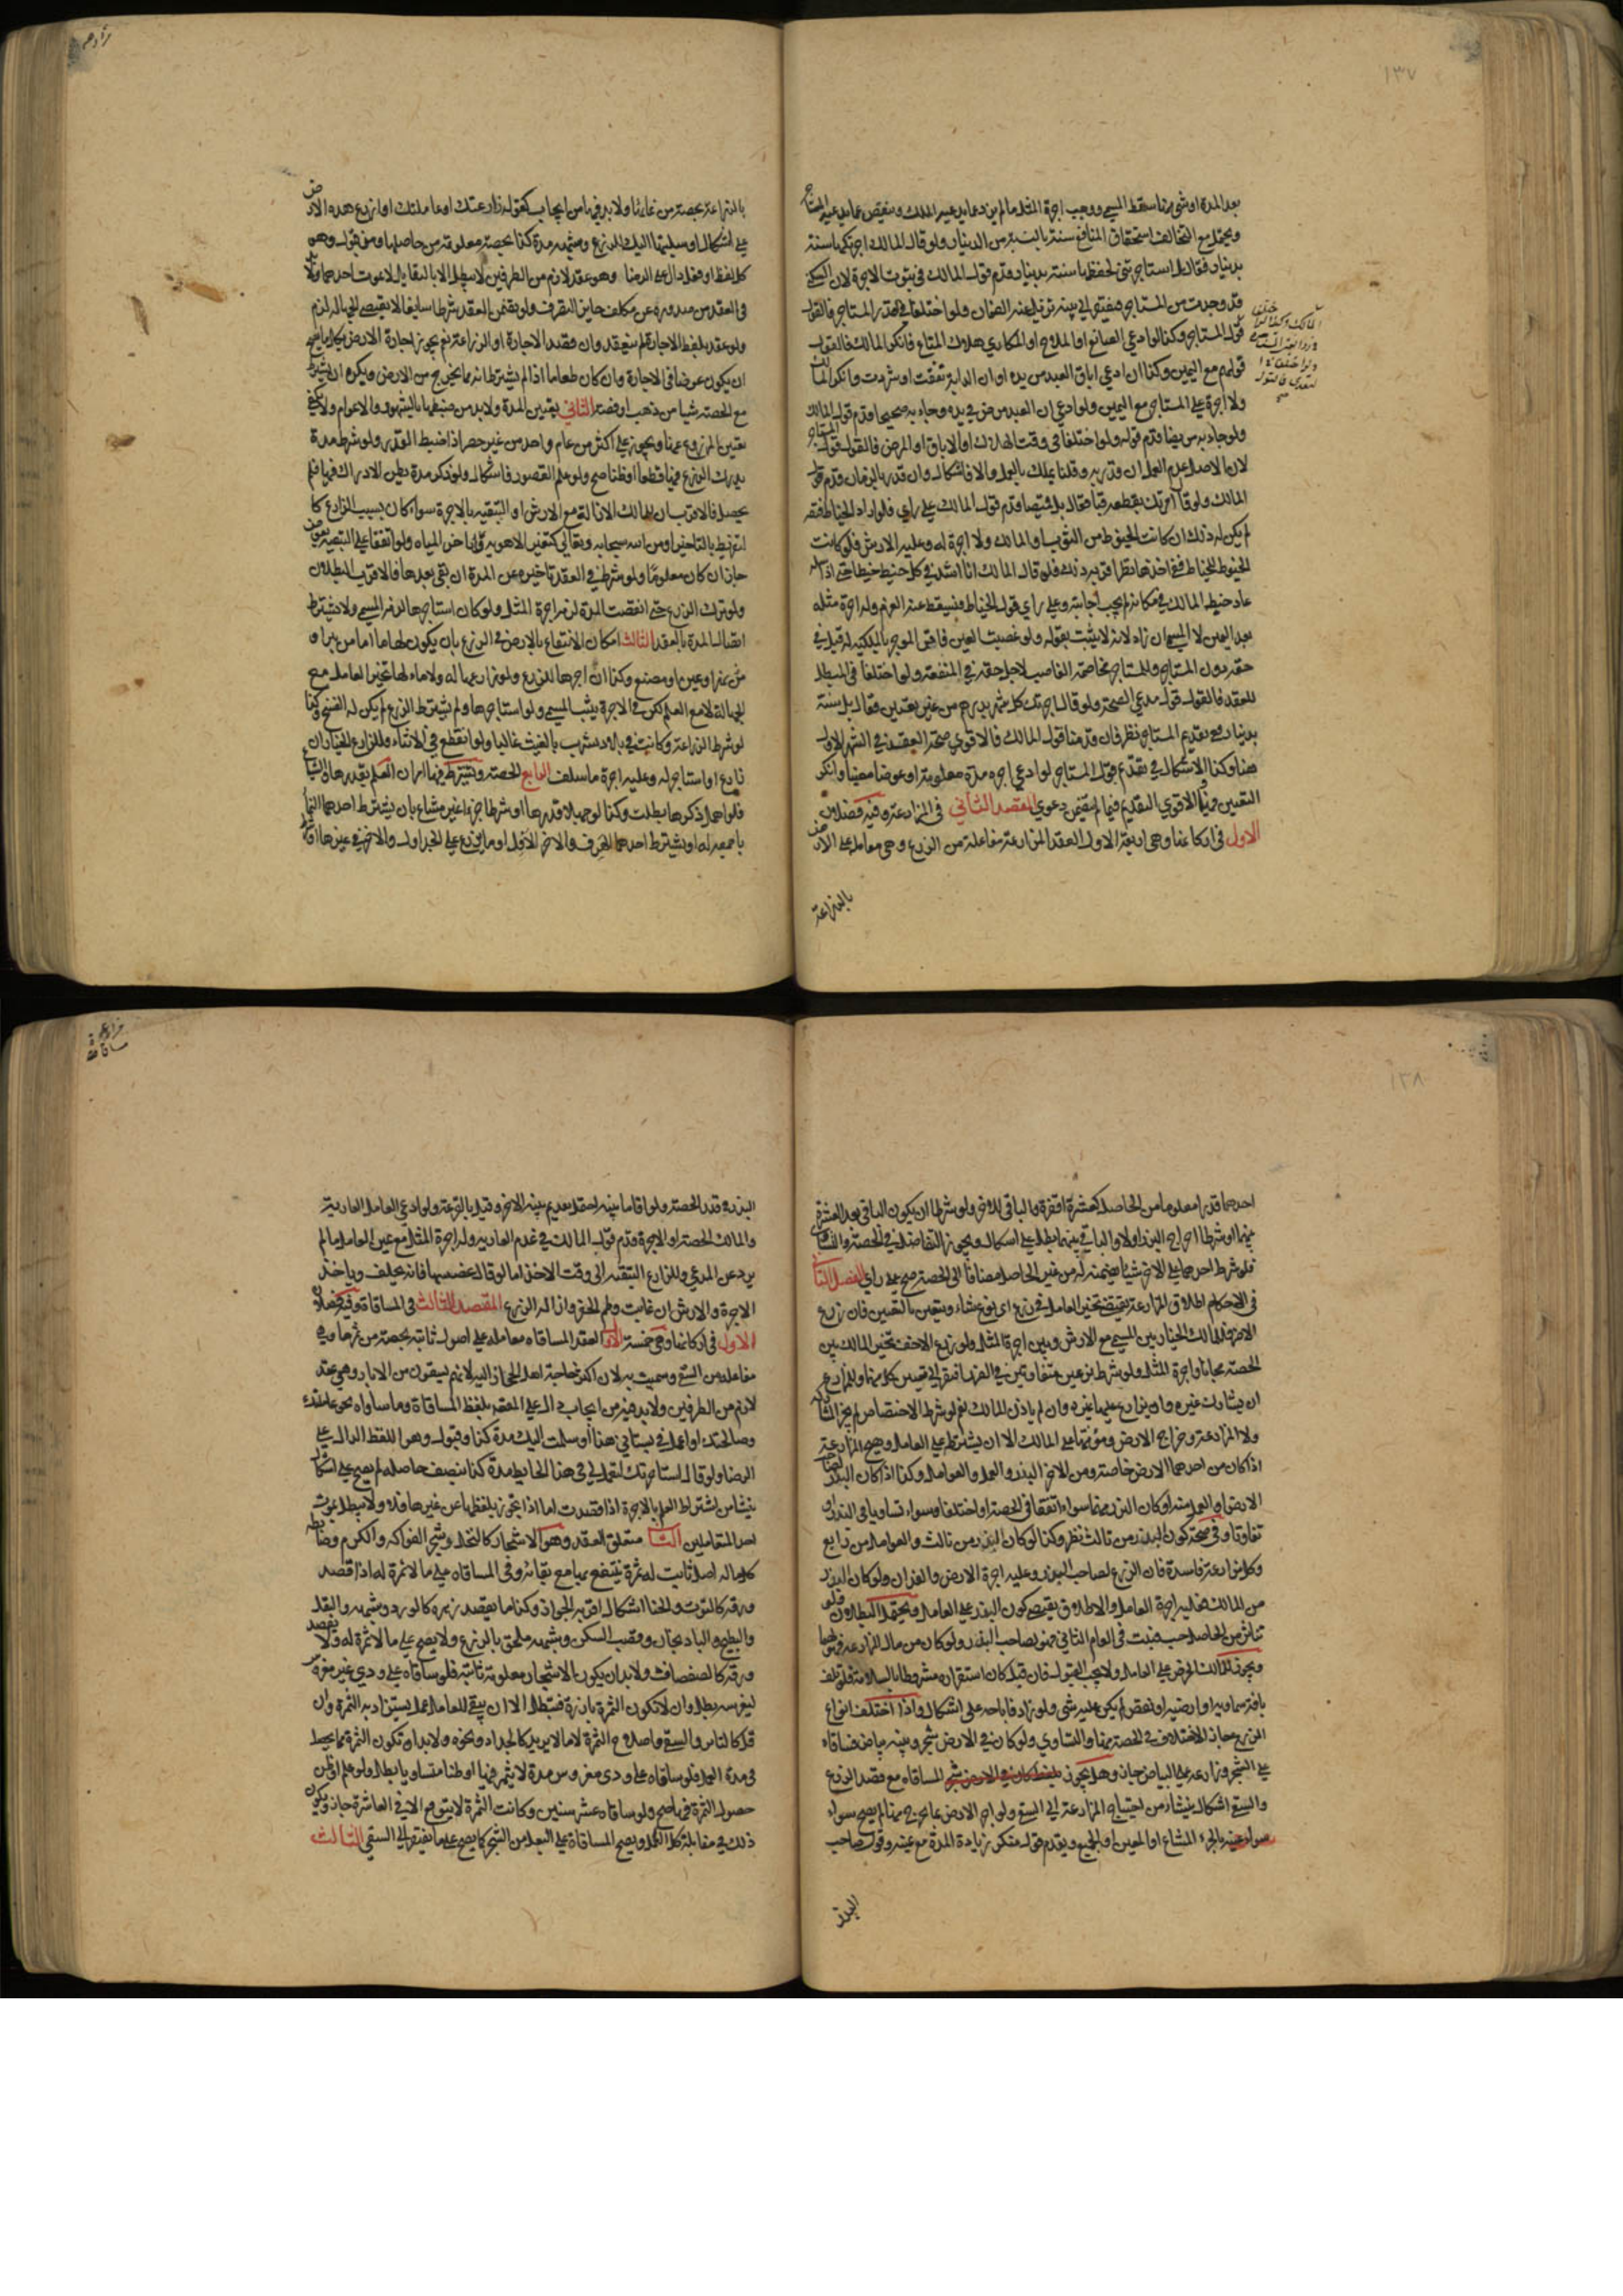 ١٣٧
بعد المدة او شيء منها سقط المسمى ووجب اجرة المثل ما لم يزد عما يدعيه المالك وينقص عما يدعيه المستاجر
ويحتمل مع التخالف استحقاق المنافع سنة بالنسبة من الدينار ولو قال المالك اجرتكها سنة
بدينار فقال بل استاجرتني لحفظها سنة بدينار قدم قول المالك في ثبوت الاجرة لان السكنى
قد وجدت من المستاجر فيفتقر الى بينة تزيل عنه الضمان ولو اختلفا في قدر المستاجر فالقول
قول المستاجر وكذا لو ادعى الصانع او الملاح او المكاري هلاك المتاع فانكر المالك فالقول
قولهم مع اليمين وكذا ان ادعى اباق العبد من يده او ان الدابة نفقت او شردت وانكر المالك
ولا اجرة على المستاجر مع اليمين ولو ادعى ان العبد مرض في يده وجاء به صحيحا قدم قول المالك
ولو جاء به مريضا قدم قوله ولو اختلفا في وقت الهلاك او الاباق او المرض فالقول قول المستاجر
لان الاصل عدم العمل ان قدر به وقلنا يملك بالعمل والا فاشكال وان قدر بالزمان قدم قول
المالك ولو قال امرتك بقطعه قباء فقال بل قميصا قدم قول المالك على راي فلو اراد الخياط فتقه
لم يكن له ذلك ان كانت الخيوط من الثوب او المالك ولا اجرة له وعليه الارش فلو كانت
الخيوط للخياط ففي اخذها نظر اقربه ذلك فلو قال المالك انا اشد في كل خيط خيطا حتى اذا سله
عاد خيط المالك في مكانه لم يجب اجابته وعلى راي قول الخياط فيسقط عنه الغرم وله اجرة مثله
بعد اليمين لا المسمى ان زاد لانه لا يثبت بقوله ولو غصبت العين فاقر الموجر بالملكية له قبل في
حقه دون المستاجر وللمستاجر مخاصمة الغاصب لاجل حقه في المنفعة ولو اختلفا في المبطل
للعقد فالقول قول مدعي الصحة ولو قال اجرتك كل شهر بدرهم من غير تعيين فقال بل سنة
بدينار ففي تقديم المستاجر نظر فان قدمنا قول المالك فالاقوى صحة العقد في الشهر الاول
هنا وكذا الاشكال في تقديم قول المستاجر لو ادعى اجرة مدة معلومة او عوضا معينا وانكر
التعيين فيهما الاقوى التقديم فيما لم يتضمن دعوى المقصد الثاني في المزارعة وفيه فصلان
الاول في اركانها وهي اربعة الاول العقد المزارعة مفاعلة من الزرع وهي معاملة على الارض
بالمزارعة
بالمزارعة بحصة من نمائها ولا بد فيها من ايجاب كقوله زارعتك او عاملتك او ازرع هذه الارض
على اشكال او سلمتها اليك للزرع وشبهه مدة كذا بحصة معلومة من حاصلها ومن قبول وهو
كل لفظ او فعل دال على الرضا وهو عقد لازم من الطرفين لا يبطل الا بالتقايل لا بموت احدهما ولا بد
في العقد من صدوره عن مكلف جايز التصرف ولو تضمن العقد شرطا سايغا لا يقتضي الجهالة لزم
ولو عقد بلفظ الاجارة لم ينعقد وان قصد الاجارة او الزراعة نعم يجوز اجارة الارض بكل ما يصح
ان يكون عوضا في الاجارة وان كان طعاما اذا لم يشترط انه مما يخرج من الارض ويكره ان يشترط
مع الحصة شيا من ذهب او فضة الثاني تعيين المدة ولا بد من ضبطها بالشهور والاعوام ولا يكفي
تعيين المزروع عنها ويجوز على اكثر من عام واحد من غير حصر اذا ضبط القدر ولو شرط مدة
يدرك الزرع فيها قطعا او ظنا صح ولو علم القصور فاشكال ولو ذكر مدة يظن الادراك فيها فلم
يحصل فالاقرب ان للمالك الازالة مع الارش او التبقية بالاجرة سواء كان بسبب الزارع كا
لتفريط بالتاخير او من الله سبحانه وتعالى كتغير الاهوية وتاخر المياه ولو اتفقا على التبقية بعوض
جاز ان كان معلوما ولو شرط في العقد تاخيره عن المدة ان بقي بعدها فالاقرب البطلان
ولو ترك الزرع حتى انقضت المدة لزمه اجرة المثل ولو كان استاجرها لزمه المسمى ولا يشترط
اتصال المدة بالعقد الثالث امكان الانتفاع بالارض في الزرع بان يكون لها ماء اما من بير او
نهر او عين او مصنع وكذا ان اجرها للزرع ولو زارعها او له ولا ماء لها تخير العامل مع
الجهالة لا مع العلم لكن في الاجرة يثبت المسمى ولو استاجرها ولم يشترط الزرع لم يكن له الفسخ وكذا
لو شرط الزراعة وكانت في بلاد تشرب بالغيث غالبا ولو انقطع في الاثناء فللزارع الخيار ان
زارع او استاجر له وعليه اجرة ما سلف الرابع الحصة ويشترط فيها امران العلم بقدرها والشياع
فلو اهمل ذكرها بطلت وكذا لو جهلا قدرها او شرطا جزءا غير مشاع بان يشترط احدهما النماء
باجمعه له او يشترط احدهما الهرف والاخر الافل او ما يزرع على الجداول والاخر في غيرها او
١٣٨
مزارعة
مساقاة
احدهما قدرا معلوما من الحاصل كعشرة اقفزة والباقي للاخر ولو شرطا ان يكون الباقي بعد العشرة
بينهما او شرطا اخراج البذر اولا والباقي بينهما بطل على اشكال ويجوز التفاضل في الحصة والتساوي
فلو شرط احدهما على الاخر شيئا يضمنه له من غير الحاصل مضافا الى الحصة صح على راي الفصل الثاني
في الاحكام اطلاق المزارعة يقتضي تخيير العامل في زرع اي نوع شاء ويتعين بالتعيين فان زرع
الاضر فللمالك الخيار بين المسمى مع الارش وبين اجرة المثل ولو زرع الاخف تخير المالك بين
الحصة مجانا واجرة المثل ولو شرط نوعين متفاوتين في الضرر افتقر الى تعيين كل منهما وللزارع
ان يشارك غيره وان يزارع عليها غيره وان لم ياذن المالك نعم لو شرط الاختصاص لم يجز المشاركة
ولا المزارعة وخراج الارض ومؤنتها على المالك الا ان يشترط على العامل وتصح المزارعة
اذا كان من احدهما الارض خاصة ومن الاخر البذر والعمل والعوامل وكذا اذا كان البذر لصاحب
الارض او العمل منه او كان البذر منهما سواء اتفقا في الحصة او اختلفا وسواء تساويا في البذر او
تفاوتا وفي صحة كون البذر من ثالث نظر وكذا لو كان البذر من ثالث والعوامل من رابع
وكل مزارعة فاسدة فان الزرع لصاحب البذر وعليه اجرة الارض والفدان ولو كان البذر
من المالك فعليه اجرة العامل والاطلاق يقتضي كون البذر على العامل ويحتمل البطلان ولو
تناثر من الحاصل حب فنبت في العام الثاني فهو لصاحب البذر ولو كان من مال المزارعة فهو لهما
ويجوز للمالك الخرص على العامل ولا يجب القبول فان قبل كان استقراره مشروطا بالسلامة فلو تلف
بافة سماوية او ارضية او نقص لم يكن عليه شيء ولو زاد فاباحة على اشكال واذا اختلف انواع
الزرع جاز الاختلاف في الحصة منها والتساوي ولو كان في الارض شجر وبينه بياض فساقاه
على الشجر وزارعه على البياض جاز وهل يجوز بلفظ المساقاة مع قصد الزرع
والسقي اشكال ينشا من احتياج المزارعة الى السقي ولو اجر الارض بما يخرج منها لم يصح سواء
عينه بالجزء المشاع او المعين او الجميع ويقدم قول منكر زيادة المدة مع يمينه وقول صاحب
البذر
البذر في قدر الحصة ولو اقاما بينة احتمل تقديم بينة الاخر وقيل بالقرعة ولو ادعى العامل العارية
والمالك الحصة او الاجرة قدم قول المالك في عدم العارية وله اجرة المثل مع يمين العامل ما لم
يزد عن المدعى وللزارع التبقية الى وقت الاخذ اما لو قال غصبتها فانه يحلف وياخذ
الاجرة والارش ان عابت وطم الحفر وازالة الزرع المقصد الثالث في المساقاة وفيه فصلان
الاول في اركانها وهي خمسة الاول العقد المساقاة معاملة على اصول ثابتة بحصة من ثمرها وهي
مفاعلة من السقي وسميت به لان اكثر حاجة اهل الحجاز اليه لانهم يسقون من الابار وهي عقد
لازم من الطرفين ولا بد فيه من ايجاب دال على المقصد بلفظ المساقاة وما ساواه نحو عاملتك
وصالحتك او اعمل في بستاني هذا او سلمت اليك مدة كذا وقبول وهو اللفظ الدال على
الرضا ولو قال استاجرتك لتعمل لي في هذا الحايط مدة كذا بنصف حاصله لم يصح على اشكال
ينشا من اشتراط العلم بالاجرة اذا قصدت اما اذا تجوز بلفظها عن غيرها فلا ولا تبطل بموت
احد المتعاملين الثاني متعلق العقد وهو الاشجار كالنخل وشجر الفواكه والكرم وضابطه
كل ما له اصل ثابت له ثمرة ينتفع بها مع بقائه وفي المساقاة على ما لا ثمرة له اذا قصد
ورقه كالتوت والحنا اشكال اقربه الجواز وكذا ما يقصد زهره كالورد وشبهه والبقل
والبطيخ والباذنجان وقصب السكر وشبهه ملحق بالزرع ولا يصح على ما لا ثمرة له ولا يقصد
ورقه كالصفصاف ولا بد ان يكون الاشجار معلومة ثابتة فلو ساقاه على ودي غير مغروس
ليغرسه بطل وان لا تكون الثمرة بارزة فتبطل الا ان يبقى للعامل عمل يستزاد به الثمرة وان
قل كالتابير والسقي واصلاح الثمرة لا ما لا يزيد كالجداد ونحوه ولا بد ان تكون الثمرة مما يحصل
في مدة العمل فلو ساقاه على ودي مغروس مدة لا يثمر فيها او ظنا متساويا بطل ولو علم او ظن
حصول الثمرة فيها صح ولو ساقاه عشر سنين وكانت الثمرة لا يتوقع الا في العاشرة جاز ويكون
ذلك في مقابلة كل العمل ويصح المساقاة على البعل من الشجر كما يصح على ما يفتقر الى السقي الثالث